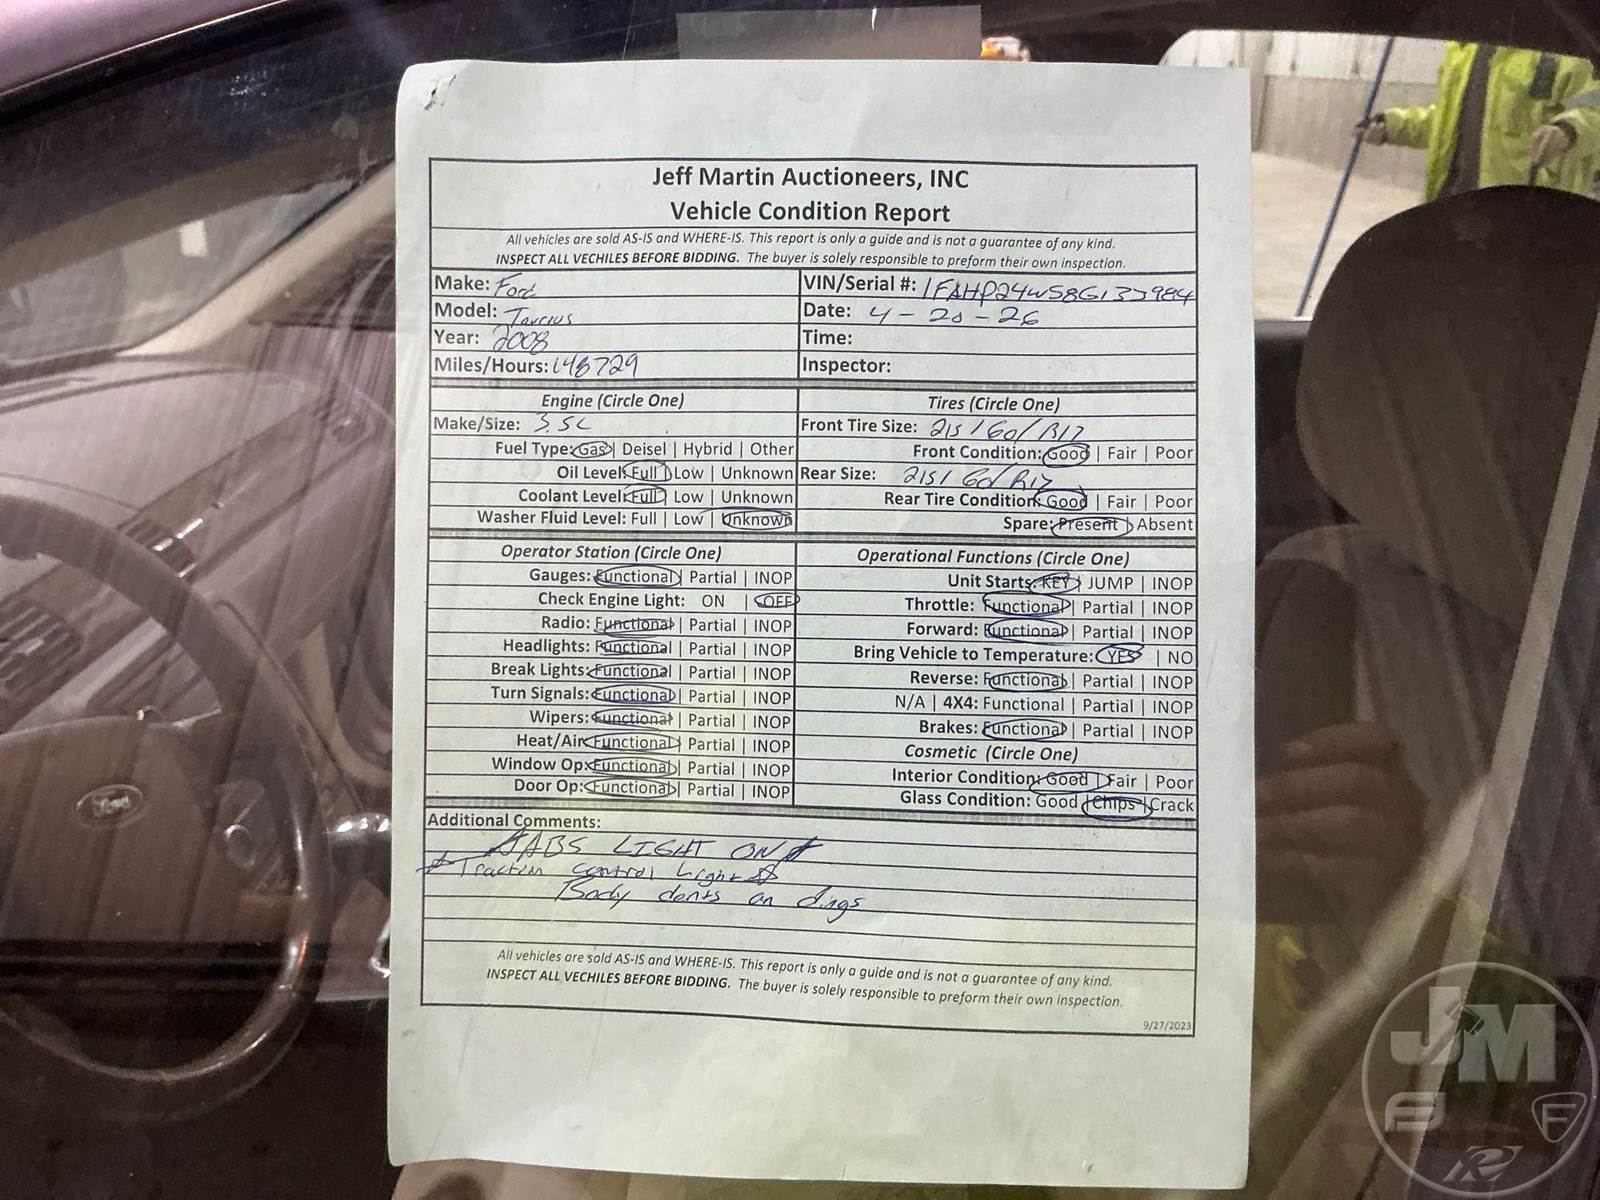 Jeff Martin Auctioneers, INC
Vehicle Condition Report
All vehicles are sold AS-IS and WHERE-IS. This report is only a guide and is not a guarantee of any kind.
INSPECT ALL VECHILES BEFORE BIDDING. The buyer is solely responsible to preform their own inspection.
Make: Ford
VIN/Serial #:
Model: Taurus
Date: 4-20-26
Year: 2008
Time:
Miles/Hours: 148729
Inspector:
Engine (Circle One)
Tires (Circle One)
Make/Size: 3.5L
Front Tire Size: 215/60/R17
Fuel Type: Gas | Deisel | Hybrid | Other
Front Condition: Good | Fair | Poor
Oil Level: Full | Low | Unknown
Rear Size: 215/60/R17
Coolant Level: Full | Low | Unknown
Rear Tire Condition: Good | Fair | Poor
Washer Fluid Level: Full | Low | Unknown
Spare: Present | Absent
Operator Station (Circle One)
Operational Functions (Circle One)
Gauges: Functional | Partial | INOP
Unit Starts: KEY | JUMP | INOP
Check Engine Light: ON | OFF
Throttle: Functional | Partial | INOP
Radio: Functional | Partial | INOP
Forward: Functional | Partial | INOP
Headlights: Functional | Partial | INOP
Bring Vehicle to Temperature: YES | NO
Break Lights: Functional | Partial | INOP
Reverse: Functional | Partial | INOP
Turn Signals: Functional | Partial | INOP
N/A | 4X4: Functional | Partial | INOP
Wipers: Functional | Partial | INOP
Brakes: Functional | Partial | INOP
Heat/Air: Functional | Partial | INOP
Cosmetic (Circle One)
Window Op: Functional | Partial | INOP
Interior Condition: Good | Fair | Poor
Door Op: Functional | Partial | INOP
Glass Condition: Good | Chips | Crack
Additional Comments:
ABS LIGHT ON
Traction control Light
Body dents an dings
All vehicles are sold AS-IS and WHERE-IS. This report is only a guide and is not a guarantee of any kind.
INSPECT ALL VECHILES BEFORE BIDDING. The buyer is solely responsible to preform their own inspection.
9/27/2023
Ford
JM